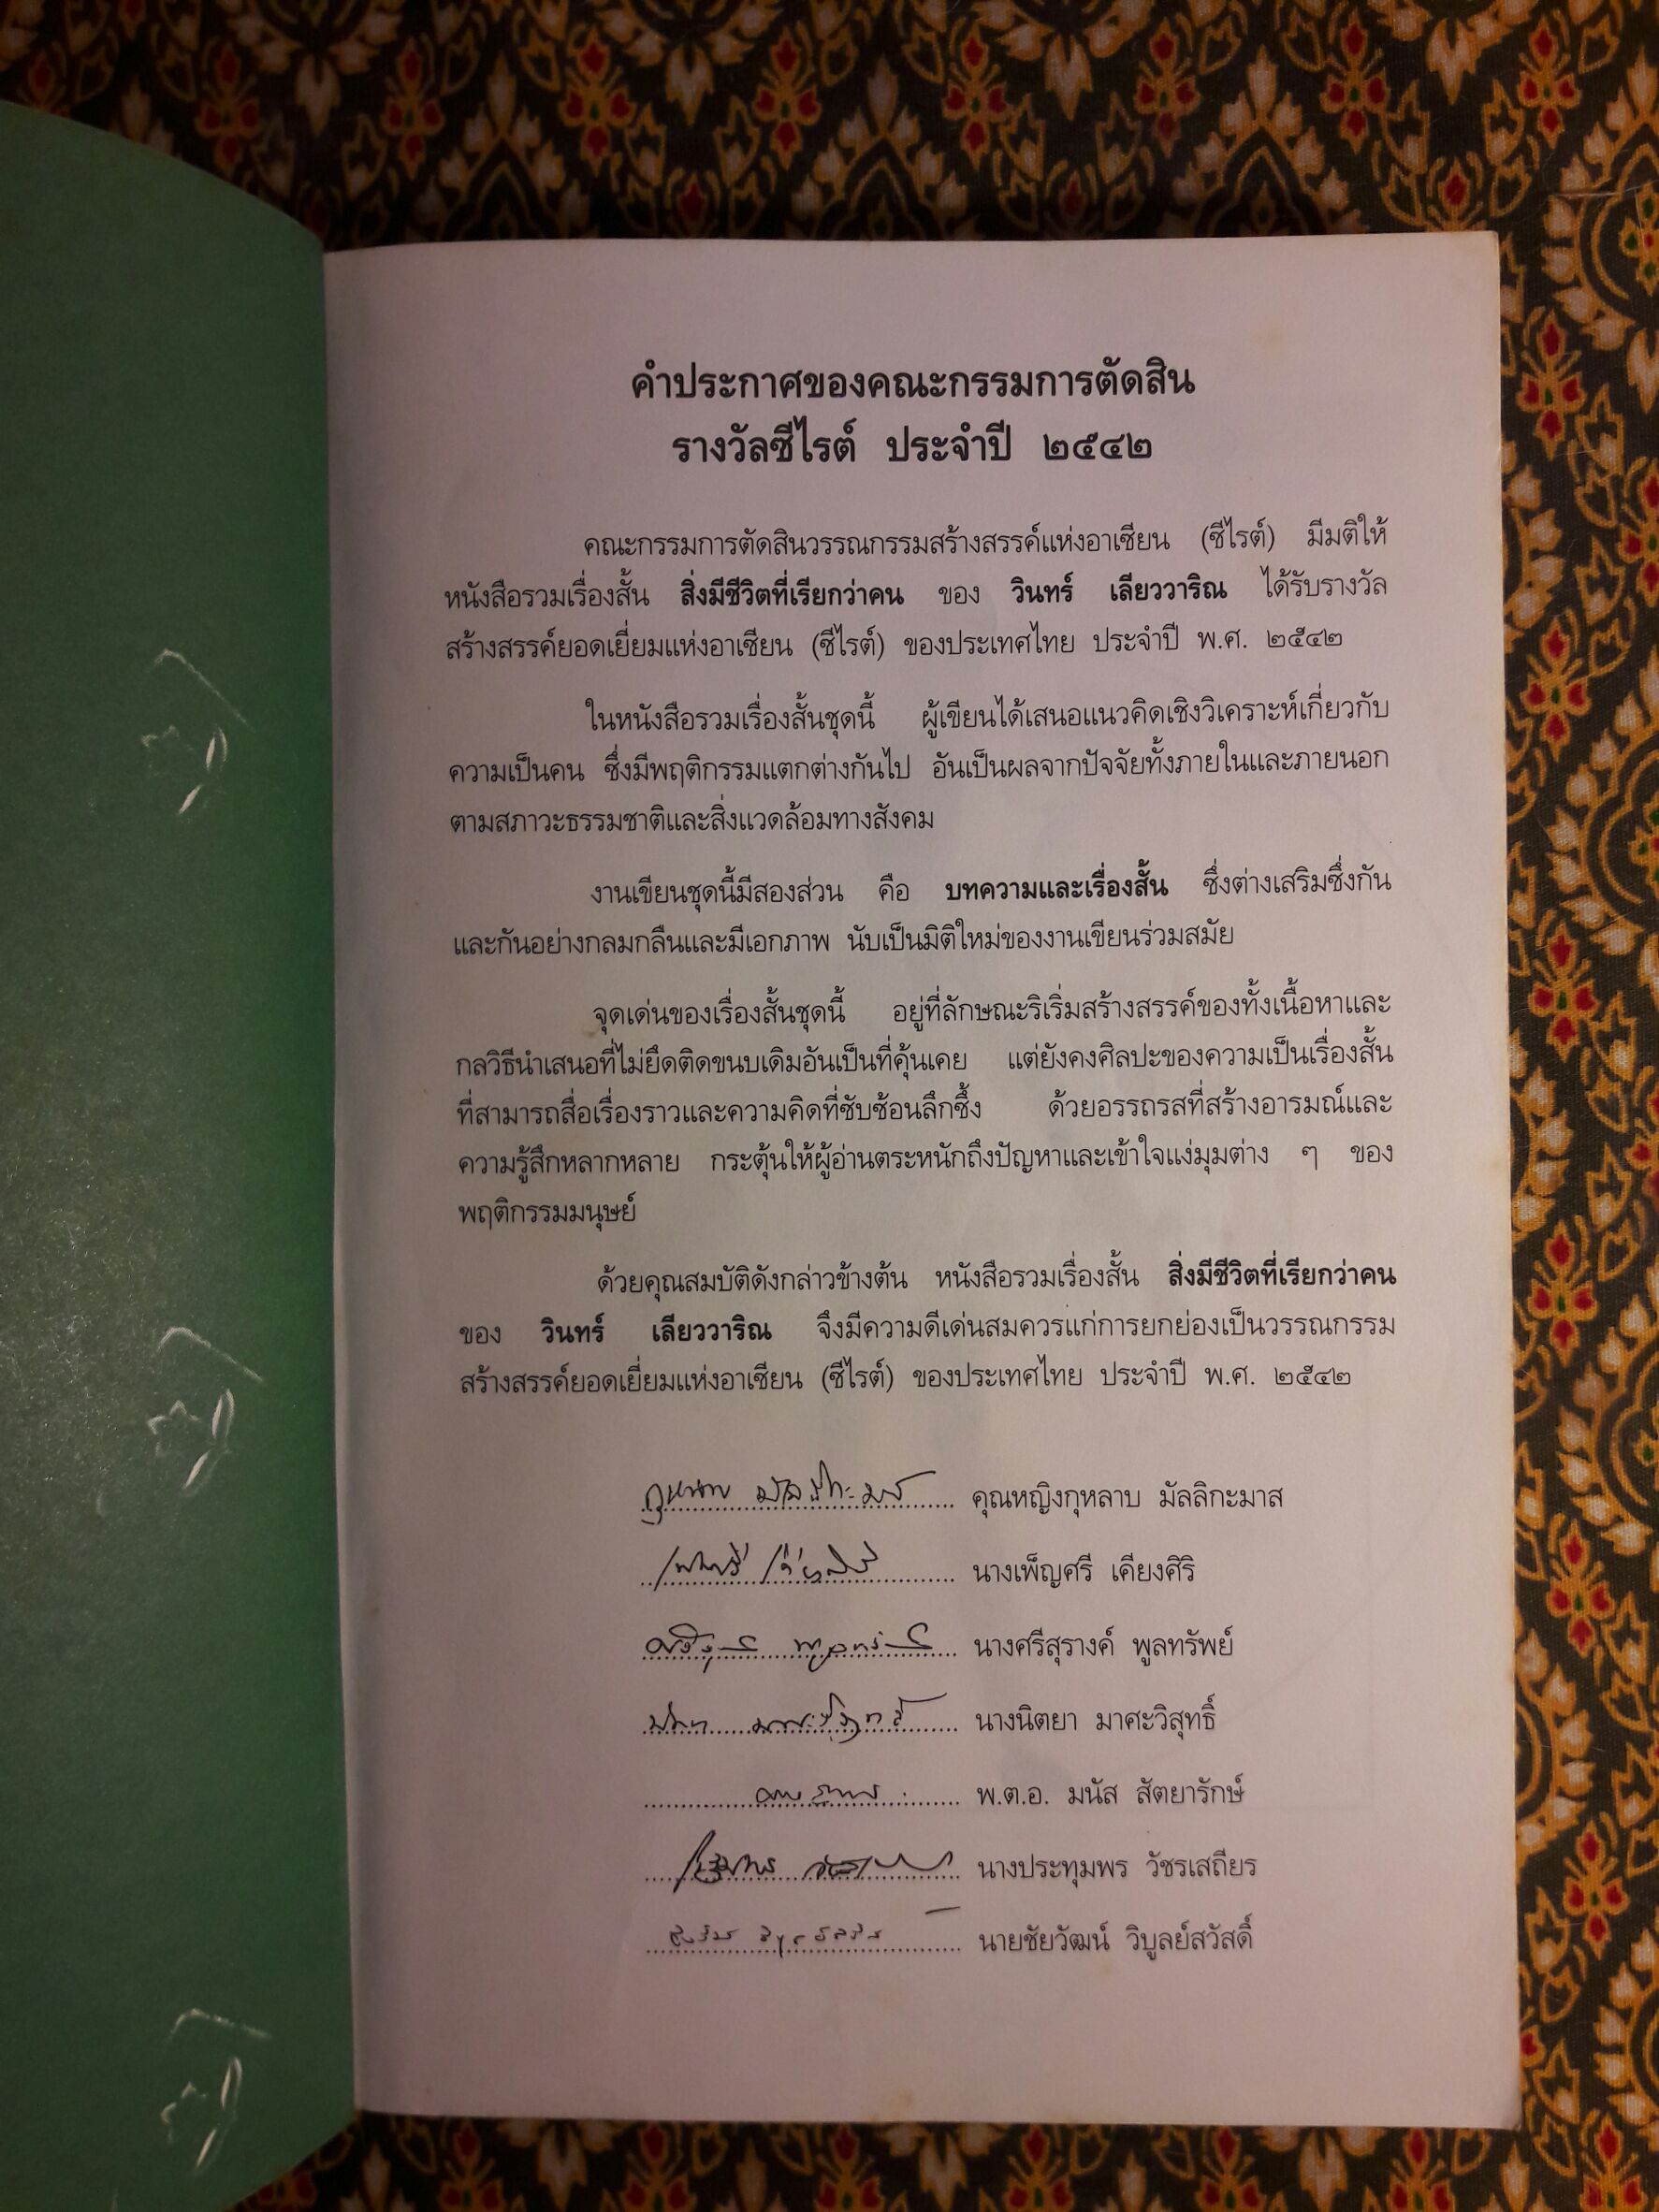 คำประกาศของคณะกรรมการตัดสิน
รางวัลซีไรต์ ประจำปี ๒๕๔๒
คณะกรรมการตัดสินวรรณกรรมสร้างสรรค์แห่งอาเซียน (ซีไรต์) มีมติให้
หนังสือรวมเรื่องสั้น สิ่งมีชีวิตที่เรียกว่าคน ของ วินทร์ เลียววาริณ ได้รับรางวัล
สร้างสรรค์ยอดเยี่ยมแห่งอาเซียน (ซีไรต์) ของประเทศไทย ประจำปี พ.ศ. ๒๕๔๒
ในหนังสือรวมเรื่องสั้นชุดนี้ ผู้เขียนได้เสนอแนวคิดเชิงวิเคราะห์เกี่ยวกับ
ความเป็นคน ซึ่งมีพฤติกรรมแตกต่างกันไป อันเป็นผลจากปัจจัยทั้งภายในและภายนอก
ตามสภาวะธรรมชาติและสิ่งแวดล้อมทางสังคม
งานเขียนชุดนี้มีสองส่วน คือ บทความและเรื่องสั้น ซึ่งต่างเสริมซึ่งกัน
และกันอย่างกลมกลืนและมีเอกภาพ นับเป็นมิติใหม่ของงานเขียนร่วมสมัย
จุดเด่นของเรื่องสั้นชุดนี้ อยู่ที่ลักษณะริเริ่มสร้างสรรค์ของทั้งเนื้อหาและ
กลวิธีนำเสนอที่ไม่ยึดติดขนบเดิมอันเป็นที่คุ้นเคย แต่ยังคงศิลปะของความเป็นเรื่องสั้น
ที่สามารถสื่อเรื่องราวและความคิดที่ซับซ้อนลึกซึ้ง ด้วยอรรถรสที่สร้างอารมณ์และ
ความรู้สึกหลากหลาย กระตุ้นให้ผู้อ่านตระหนักถึงปัญหาและเข้าใจแง่มุมต่าง ๆ ของ
พฤติกรรมมนุษย์
ด้วยคุณสมบัติดังกล่าวข้างต้น หนังสือรวมเรื่องสั้น สิ่งมีชีวิตที่เรียกว่าคน
ของ วินทร์ เลียววาริณ จึงมีความดีเด่นสมควรแก่การยกย่องเป็นวรรณกรรม
สร้างสรรค์ยอดเยี่ยมแห่งอาเซียน (ซีไรต์) ของประเทศไทย ประจำปี พ.ศ. ๒๕๔๒
คุณหญิงกุหลาบ มัลลิกะมาส
นางเพ็ญศรี เคียงศิริ
นางศรีสุรางค์ พูลทรัพย์
นางนิตยา มาศะวิสุทธิ์
พ.ต.อ. มนัส สัตยารักษ์
นางประทุมพร วัชรเสถียร
นายชัยวัฒน์ วิบูลย์สวัสดิ์